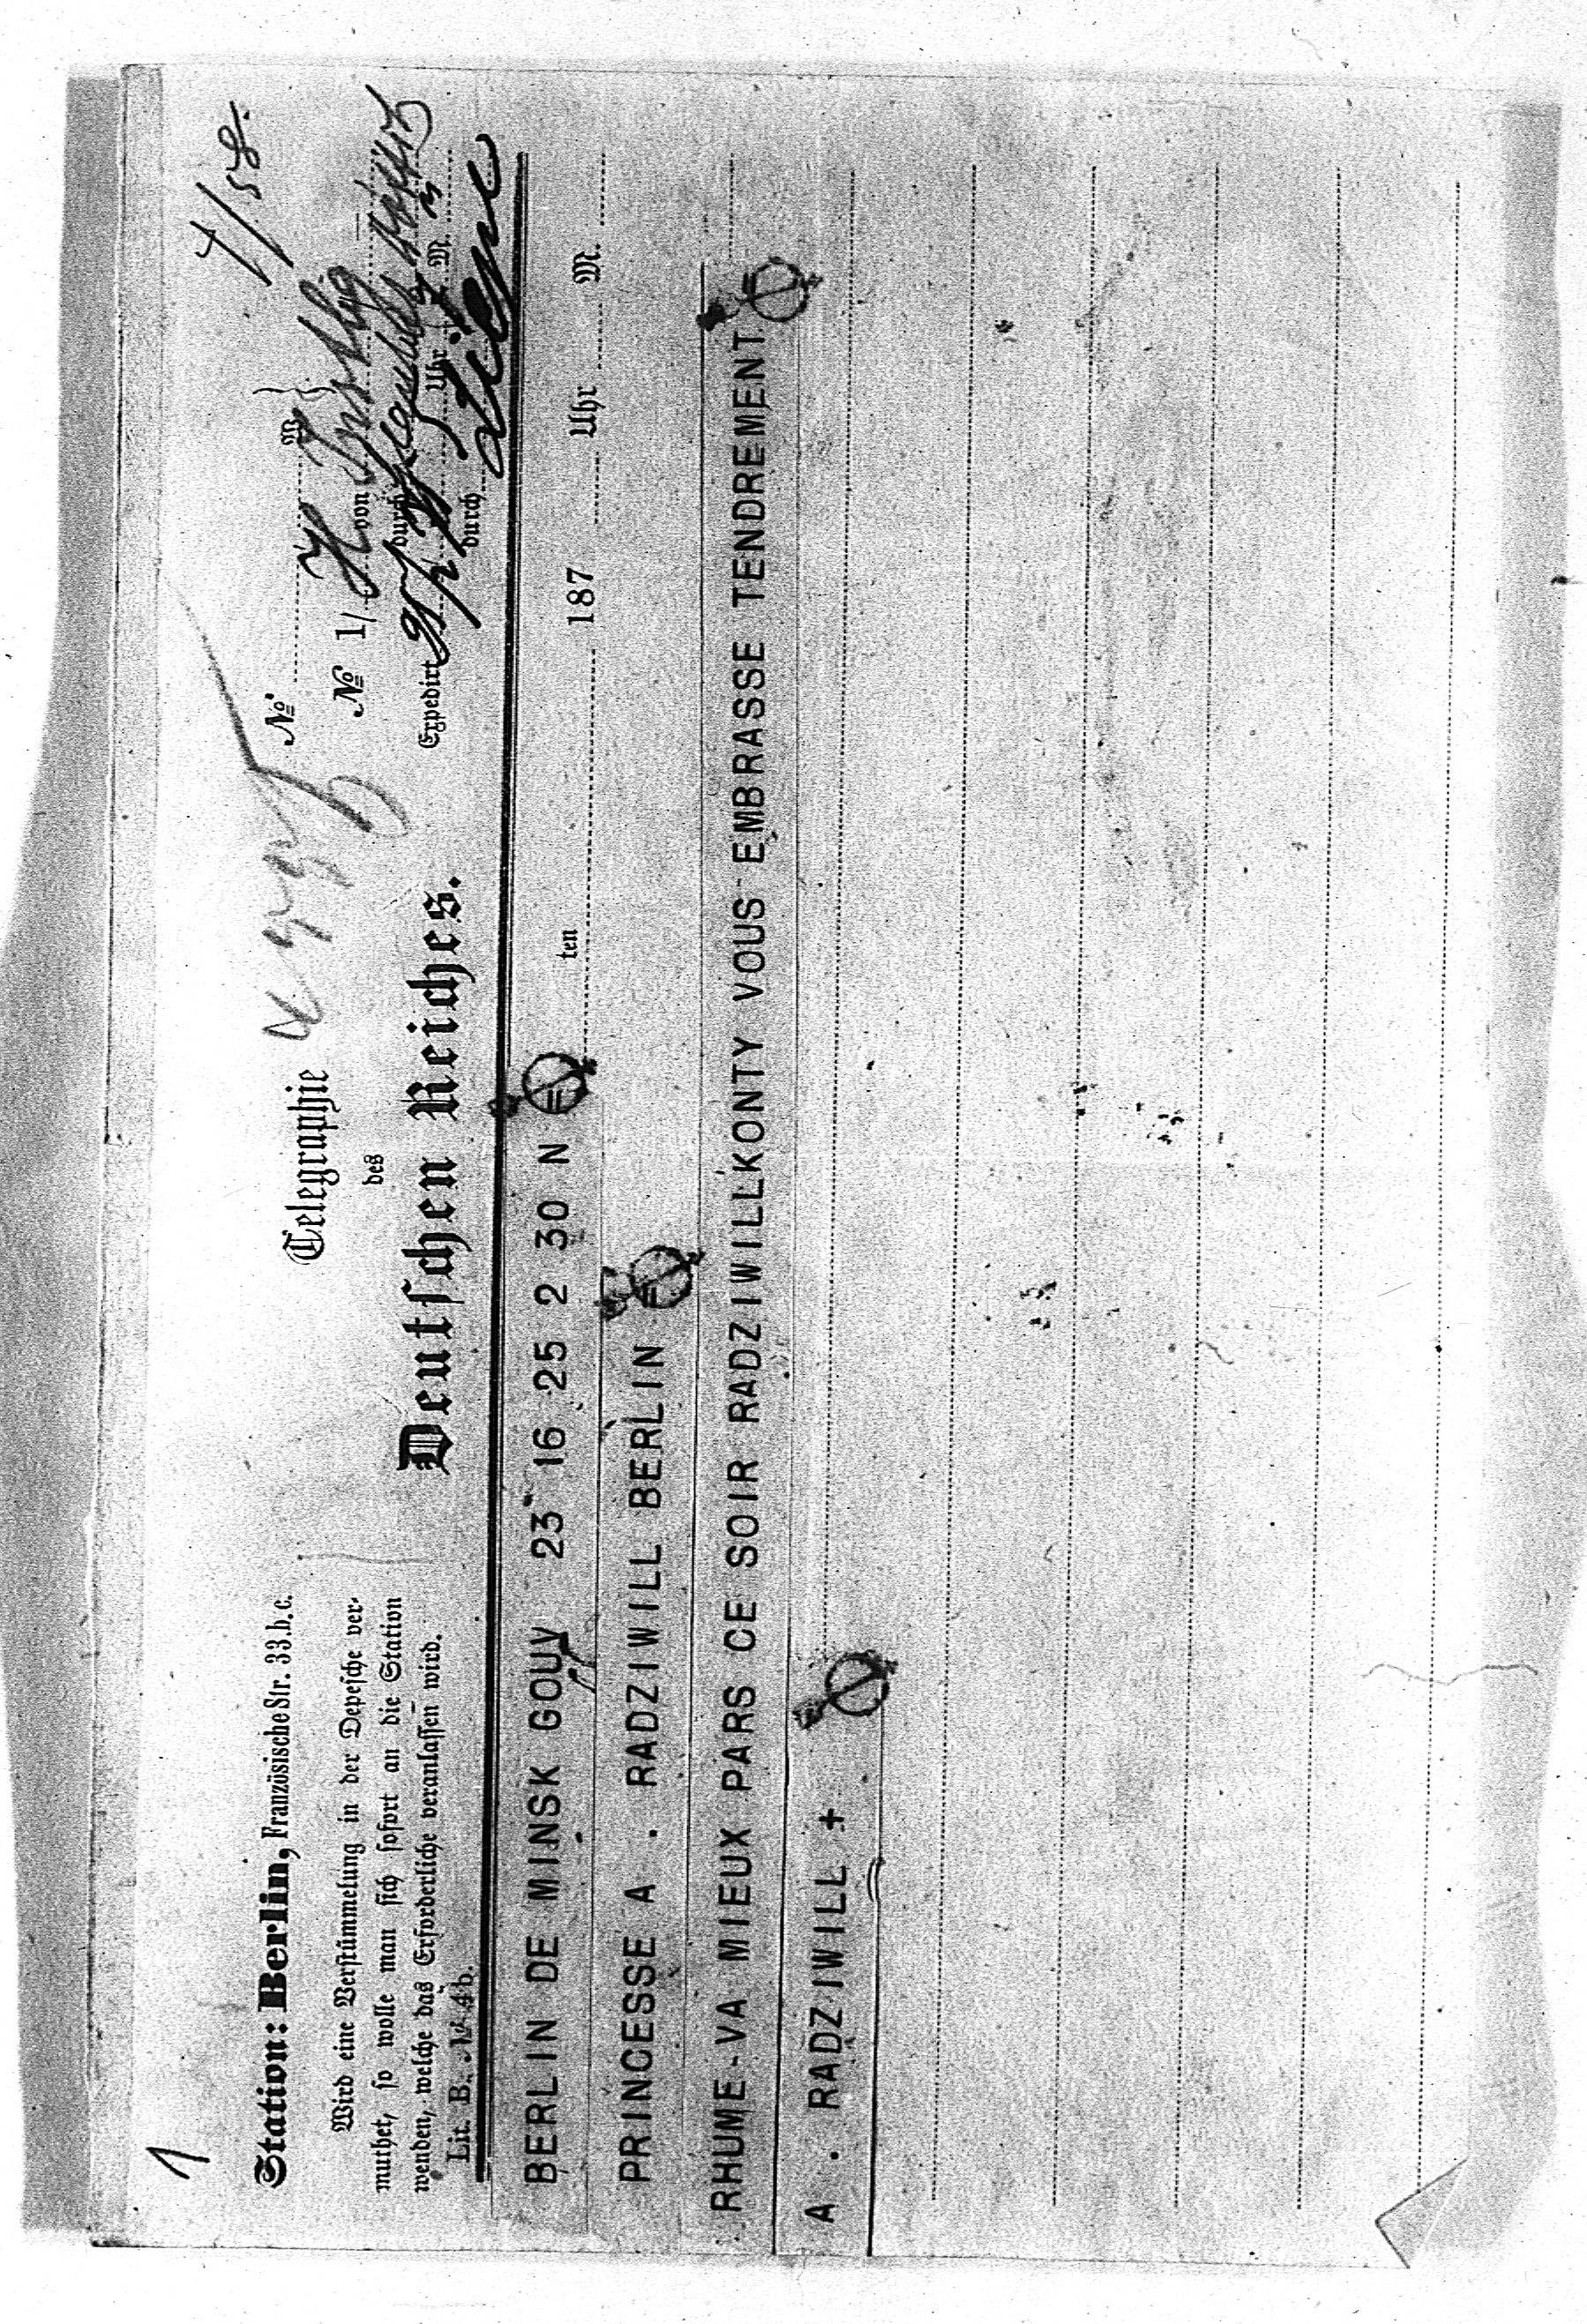 1
Station: Berlin, Französische Str. 33.b.c.
Wird eine Verstümmelung in der Depesche ver-
muthet, so wolle man sich sofort an die Station
wenden, welche das Erforderliche veranlassen wird.
Lit. B. № 4b.
Telegraphie
des
Deutschen Reiches.
№ W.
№ 1/ von
durch
Expedirt Uhr M.
durch
BERLIN DE MINSK GOUV 23 16 25 2 30 N =
ten 187 Uhr M.
PRINCESSE A . RADZIWILL BERLIN =
RHUME-VA MIEUX PARS CE SOIR RADZIWILLKONTY VOUS EMBRASSE TENDREMENT =
A . RADZIWILL +